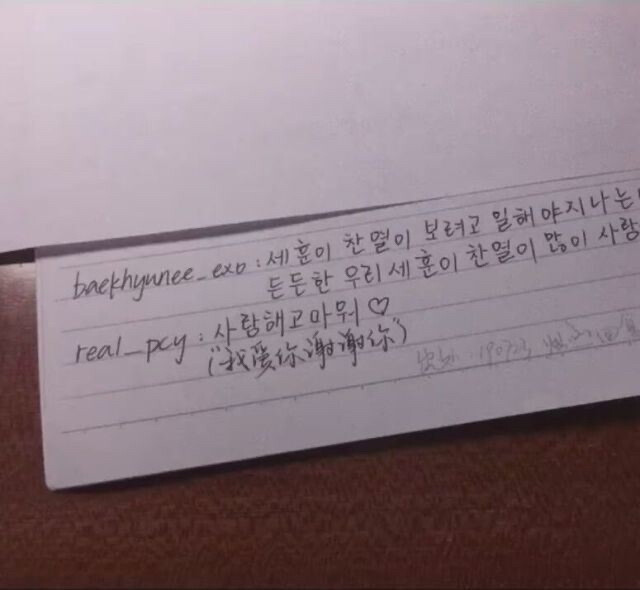 baekhyunee_exo : 세훈이 찬열이 보려고 일해야지 나는
든든한 우리 세훈이 찬열이 많이 사랑
real_pcy : 사랑해 고마워 ♡
("我爱你谢谢你")
190723